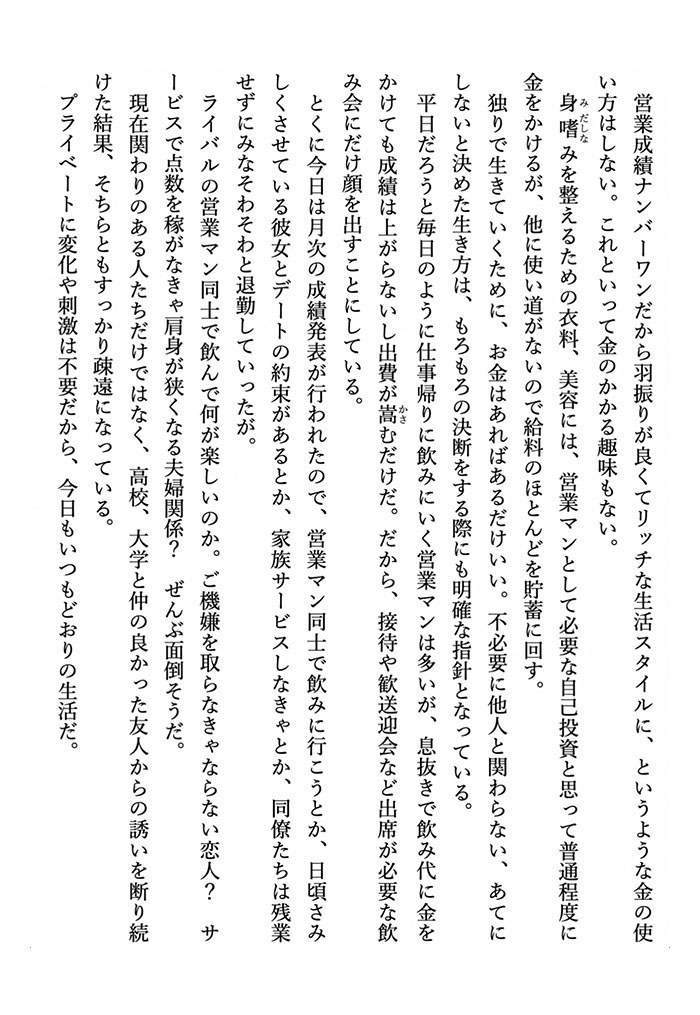 営業成績ナンバーワンだから羽振りが良くてリッチな生活スタイルに、というような金の使
い方はしない。これといって金のかかる趣味もない。
身嗜みを整えるための衣料、美容には、営業マンとして必要な自己投資と思って普通程度に
金をかけるが、他に使い道がないので給料のほとんどを貯蓄に回す。
独りで生きていくために、お金はあればあるだけいい。不必要に他人と関わらない、あてに
しないと決めた生き方は、もろもろの決断をする際にも明確な指針となっている。
平日だろうと毎日のように仕事帰りに飲みにいく営業マンは多いが、息抜きで飲み代に金を
かけても成績は上がらないし出費が嵩むだけだ。だから、接待や歓送迎会など出席が必要な飲
み会にだけ顔を出すことにしている。
とくに今日は月次の成績発表が行われたので、営業マン同士で飲みに行こうとか、日頃さみ
しくさせている彼女とデートの約束があるとか、家族サービスしなきゃとか、同僚たちは残業
せずにみなそわそわと退勤していったが。
ライバルの営業マン同士で飲んで何が楽しいのか。ご機嫌を取らなきゃならない恋人？　サ
ービスで点数を稼がなきゃ肩身が狭くなる夫婦関係？　ぜんぶ面倒そうだ。
現在関わりのある人たちだけではなく、高校、大学と仲の良かった友人からの誘いを断り続
けた結果、そちらともすっかり疎遠になっている。
プライベートに変化や刺激は不要だから、今日もいつもどおりの生活だ。